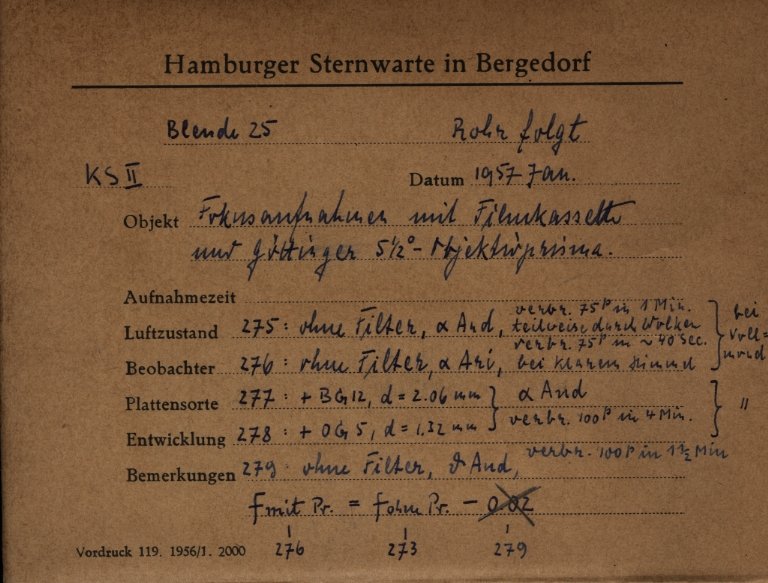 Hamburger Sternwarte in Bergedorf
Blende 25 Rohr folgt
KS II Datum 1957 Jan.
Objekt Fokusaufnahmen mit Filmkassette
und Göttinger 5½°-Objektivprisma.
Aufnahmezeit
verbr. 75P in 1 Min.
Luftzustand 275: ohne Filter, α And, teilweise durch Wolken
verbr. 75P in ~ 40 Sec.
bei Voll=mond
Beobachter 276: ohne Filter, α Ari, bei klarem Himmel
Plattensorte 277: + BG12, d = 2.06 mm } α And
verbr. 100P in 4 Min. } "
Entwicklung 278: + OG5, d = 1.32 mm
verbr. 100P in 1½ Min
Bemerkungen 279: ohne Filter, ϑ And,
f mit Pr. = f ohne Pr. - 0.02
Vordruck 119. 1956/1. 2000 276 273 279